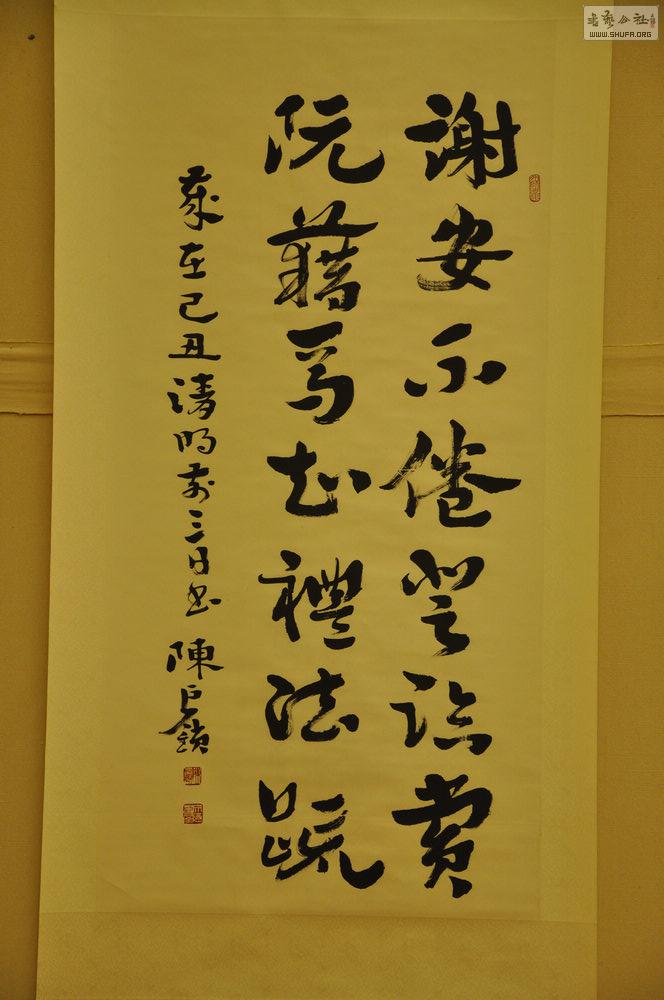 謝安不倦登臨賞
阮藉焉知禮法疏
歲在己丑清明前三日書 陳巨鎖
書藝公社
WWW.SHUFA.ORG